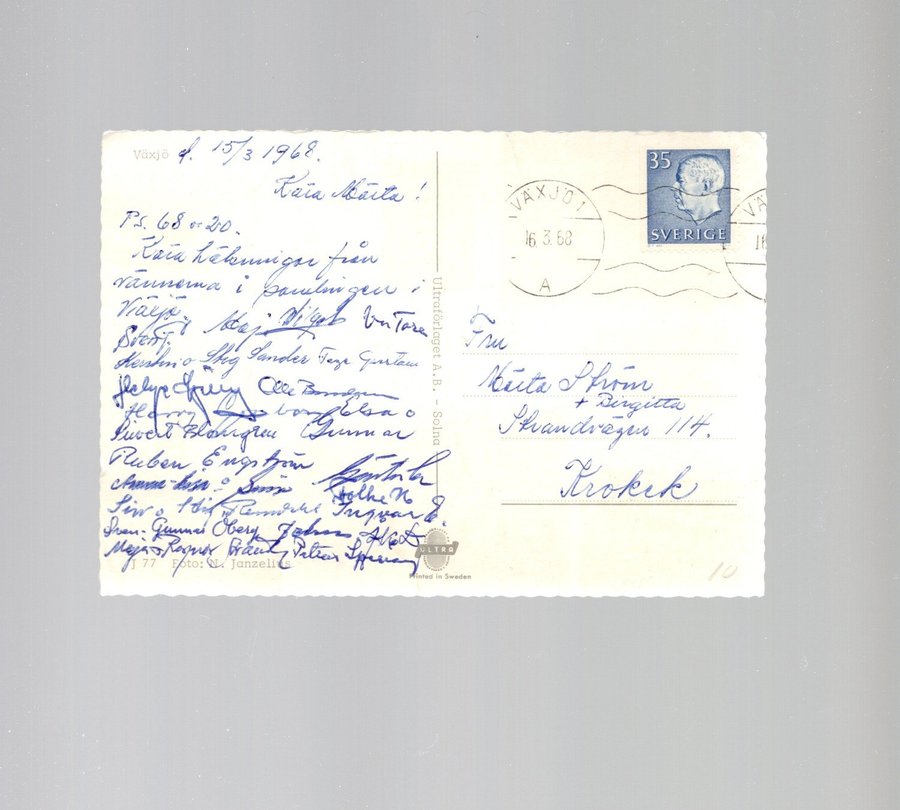 Växjö d. 15/3 1968.
Kära Märta!
Ps. 68 o 20.
Kära hälsningar från
vännerna i samlingen i
Växjö.
Maj
Kerstin o Stig Sander Tage Gustav
Helge Olle
Harry Elsa o
Sievert Blomgren Gunnar
Ruben Engström
Anna-Lisa o
Folke N
Siw o Stig Ingvar E.
Sven-Gunnar Öberg
Maja o Ragnar Petrus
J 77 Foto: N. Janzelius
Ultraförlaget A.B. - Solna
ULTRA
Printed in Sweden
35
SVERIGE
VÄXJÖ 1
16 3.68
A
VÄ
16
Fru
Märta Ström
+ Birgitta
Strandvägen 114.
Krokek
10